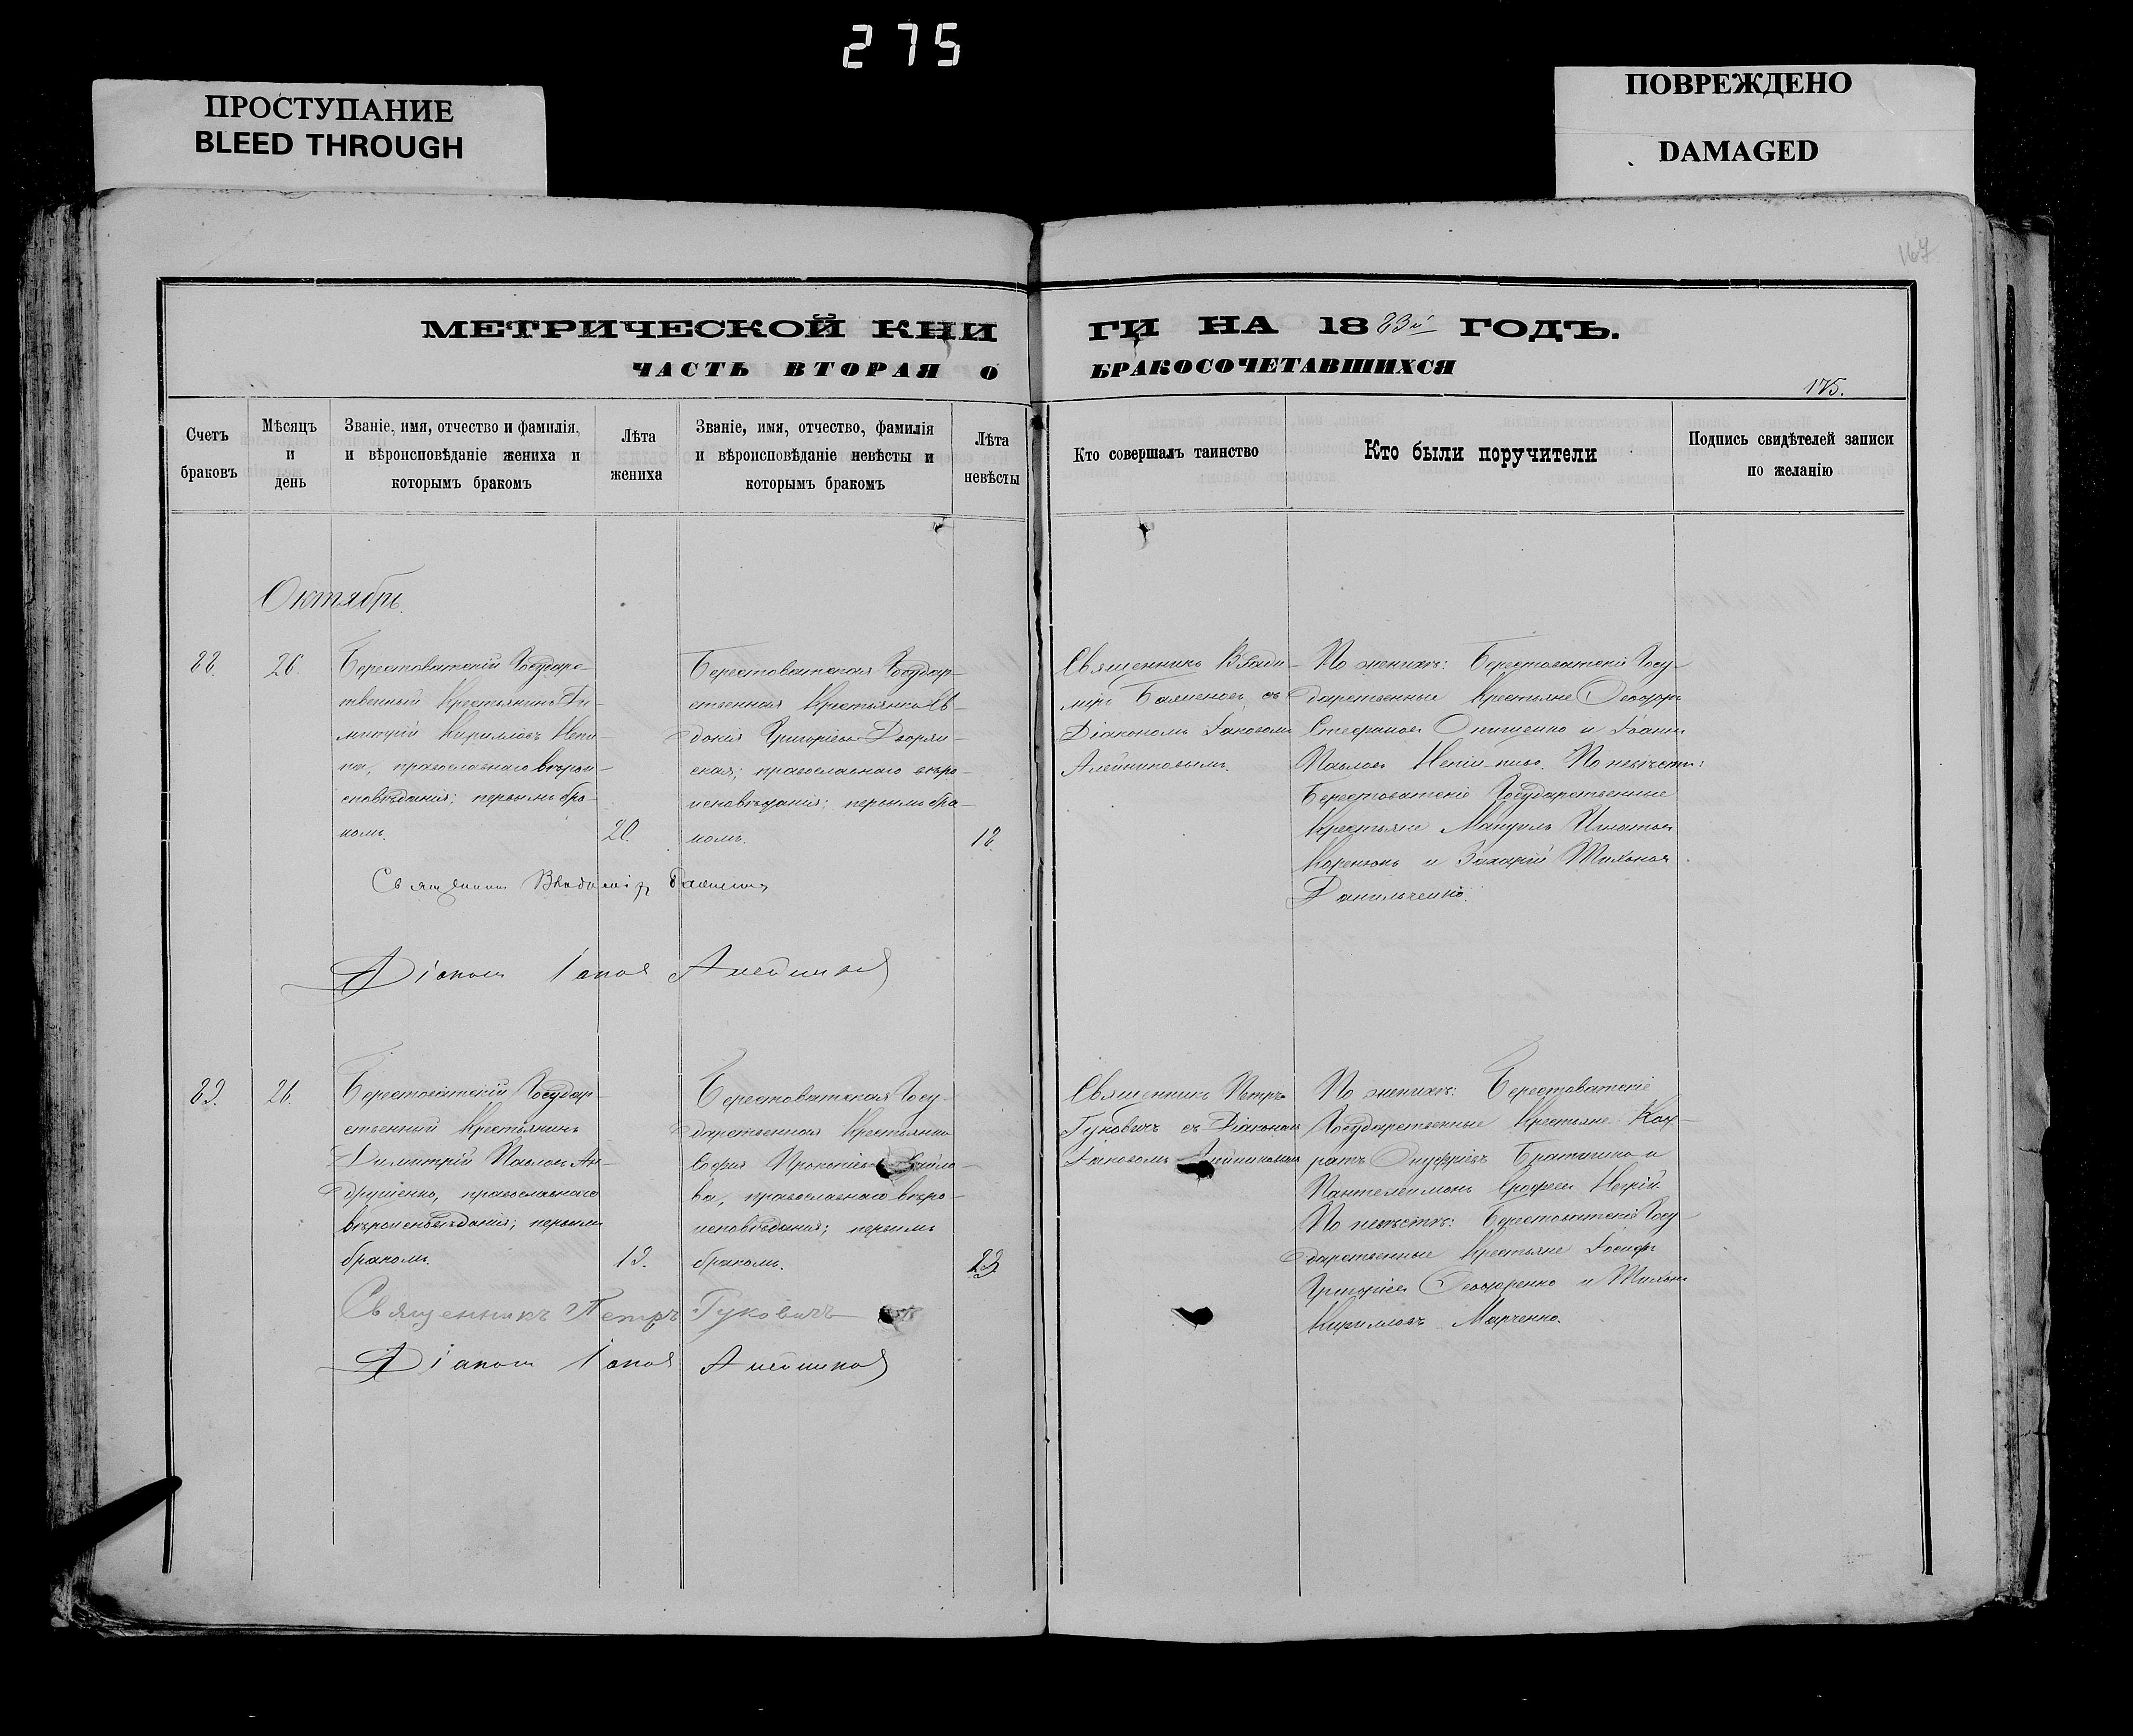 275
ПРОСТУПАНИЕ
BLEED THROUGH
ПОВРЕЖДЕНО
DAMAGED
167
МЕТРИЧЕСКОЙ КНИ
ГИ НА 1883й ГОДЪ.
ЧАСТЬ ВТОРАЯ О
БРАКОСОЧЕТАВШИХСЯ
175.
Счетъ
браковъ
Мѣсяцъ
и
день
Званіе, имя, отчество и фамилія,
и вѣроисповѣданіе жениха и
которымъ бракомъ
Лѣта
жениха
Званіе, имя, отчество, фамилія
и вѣроисповѣданіе невѣсты и
которымъ бракомъ
Лѣта
невѣсты
Кто совершалъ таинство
Кто были поручители
Подпись свидѣтелей записи
по желанію
Октябрь.
88.
26.
Берестоватскій Государс-
твенный Крестьянинъ Ди-
митрій Кирилловъ
православнаго вѣрои-
сповѣданія; первымъ бра-
комъ.
20.
Берестоватская Государ-
ственная Крестьянка Ев-
докія Григоріева
ская; православнаго вѣро-
исповѣданія; первымъ бра-
комъ.
18.
Священникъ Влади-
міръ съ
Діакономъ Іаковомъ
Алейниковымъ.
По женихѣ: Берестоватскіе Госу-
дарственные Крестьяне Ѳеодоръ
Стефановъ Онищенко и Іоаннъ
Павловъ По невѣстѣ:
Берестоватскіе Государственные
Крестьяне Мануилъ Игнатьевъ
и Захарій Тихоновъ
Данильченко.
Священникъ Владиміръ
Діаконъ Іаковъ Алейниковъ
89.
26.
Берестоватскій Государ-
ственный Крестьянинъ
Димитрій Павловъ Ан-
друшенко, православнаго
вѣроисповѣданія; первымъ
бракомъ.
19.
Берестоватская Госу-
дарственная Крестьянка
Софія Прокопіева
ва, православнаго вѣро-
исповѣданія; первымъ
бракомъ.
23.
Священникъ Петръ
Гуковичъ съ Діакономъ
Іаковомъ
По женихѣ: Берестоватскіе
Государственные Крестьяне Код-
ратъ Онуфріевъ и
Пантелеимонъ
По невѣстѣ: Берестоватскіе Госу-
дарственные Крестьяне Іосифъ
Григоріевъ Ѳеодоренко и Тихонъ
Кирилловъ Марченко.
Священникъ Петръ Гуковичъ
Діаконъ Іаковъ Алейниковъ